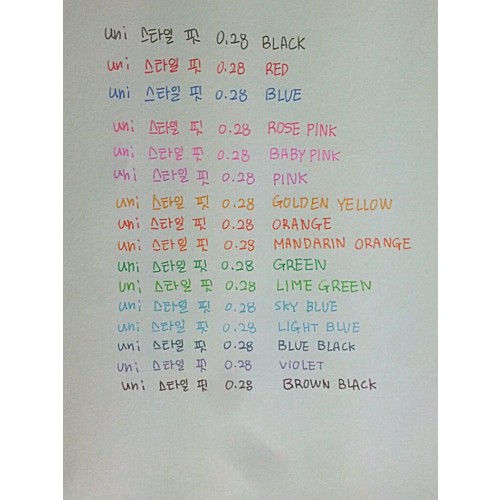 uni 스타일 핏 0.28 BLACK
uni 스타일 핏 0.28 RED
uni 스타일 핏 0.28 BLUE
uni 스타일 핏 0.28 ROSE PINK
uni 스타일 핏 0.28 BABY PINK
uni 스타일 핏 0.28 PINK
uni 스타일 핏 0.28 GOLDEN YELLOW
uni 스타일 핏 0.28 ORANGE
uni 스타일 핏 0.28 MANDARIN ORANGE
uni 스타일 핏 0.28 GREEN
uni 스타일 핏 0.28 LIME GREEN
uni 스타일 핏 0.28 SKY BLUE
uni 스타일 핏 0.28 LIGHT BLUE
uni 스타일 핏 0.28 BLUE BLACK
uni 스타일 핏 0.28 VIOLET
uni 스타일 핏 0.28 BROWN BLACK